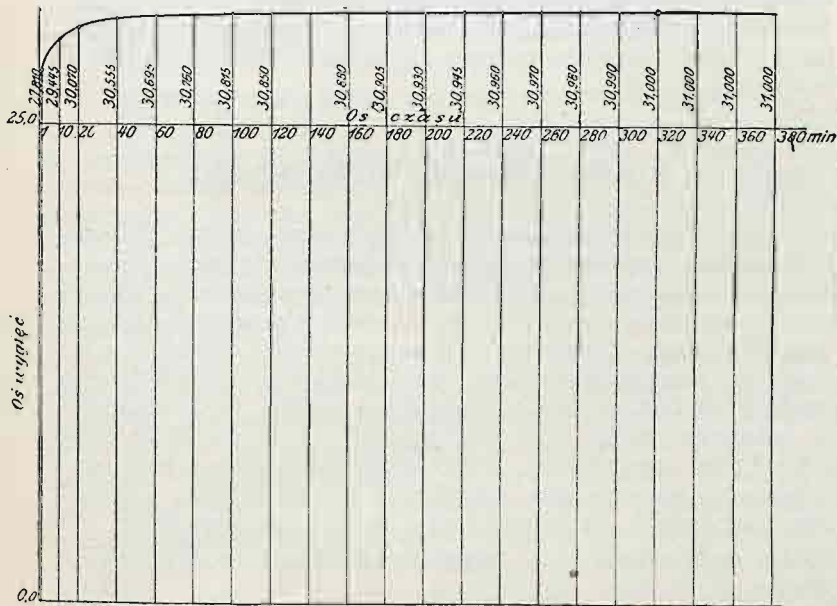 29,445
30,070
30,555
30,695
30,760
30,815
30,850
30,880
30,905
30,930
30,945
30,960
30,970
30,980
30,990
31,000
31,000
31,000
31,000
25,0
Oś czasu
1 10 20 40 60 80 100 120 140 160 180 200 220 240 260 280 300 320 340 360 380 min
Oś wygięć
0,0